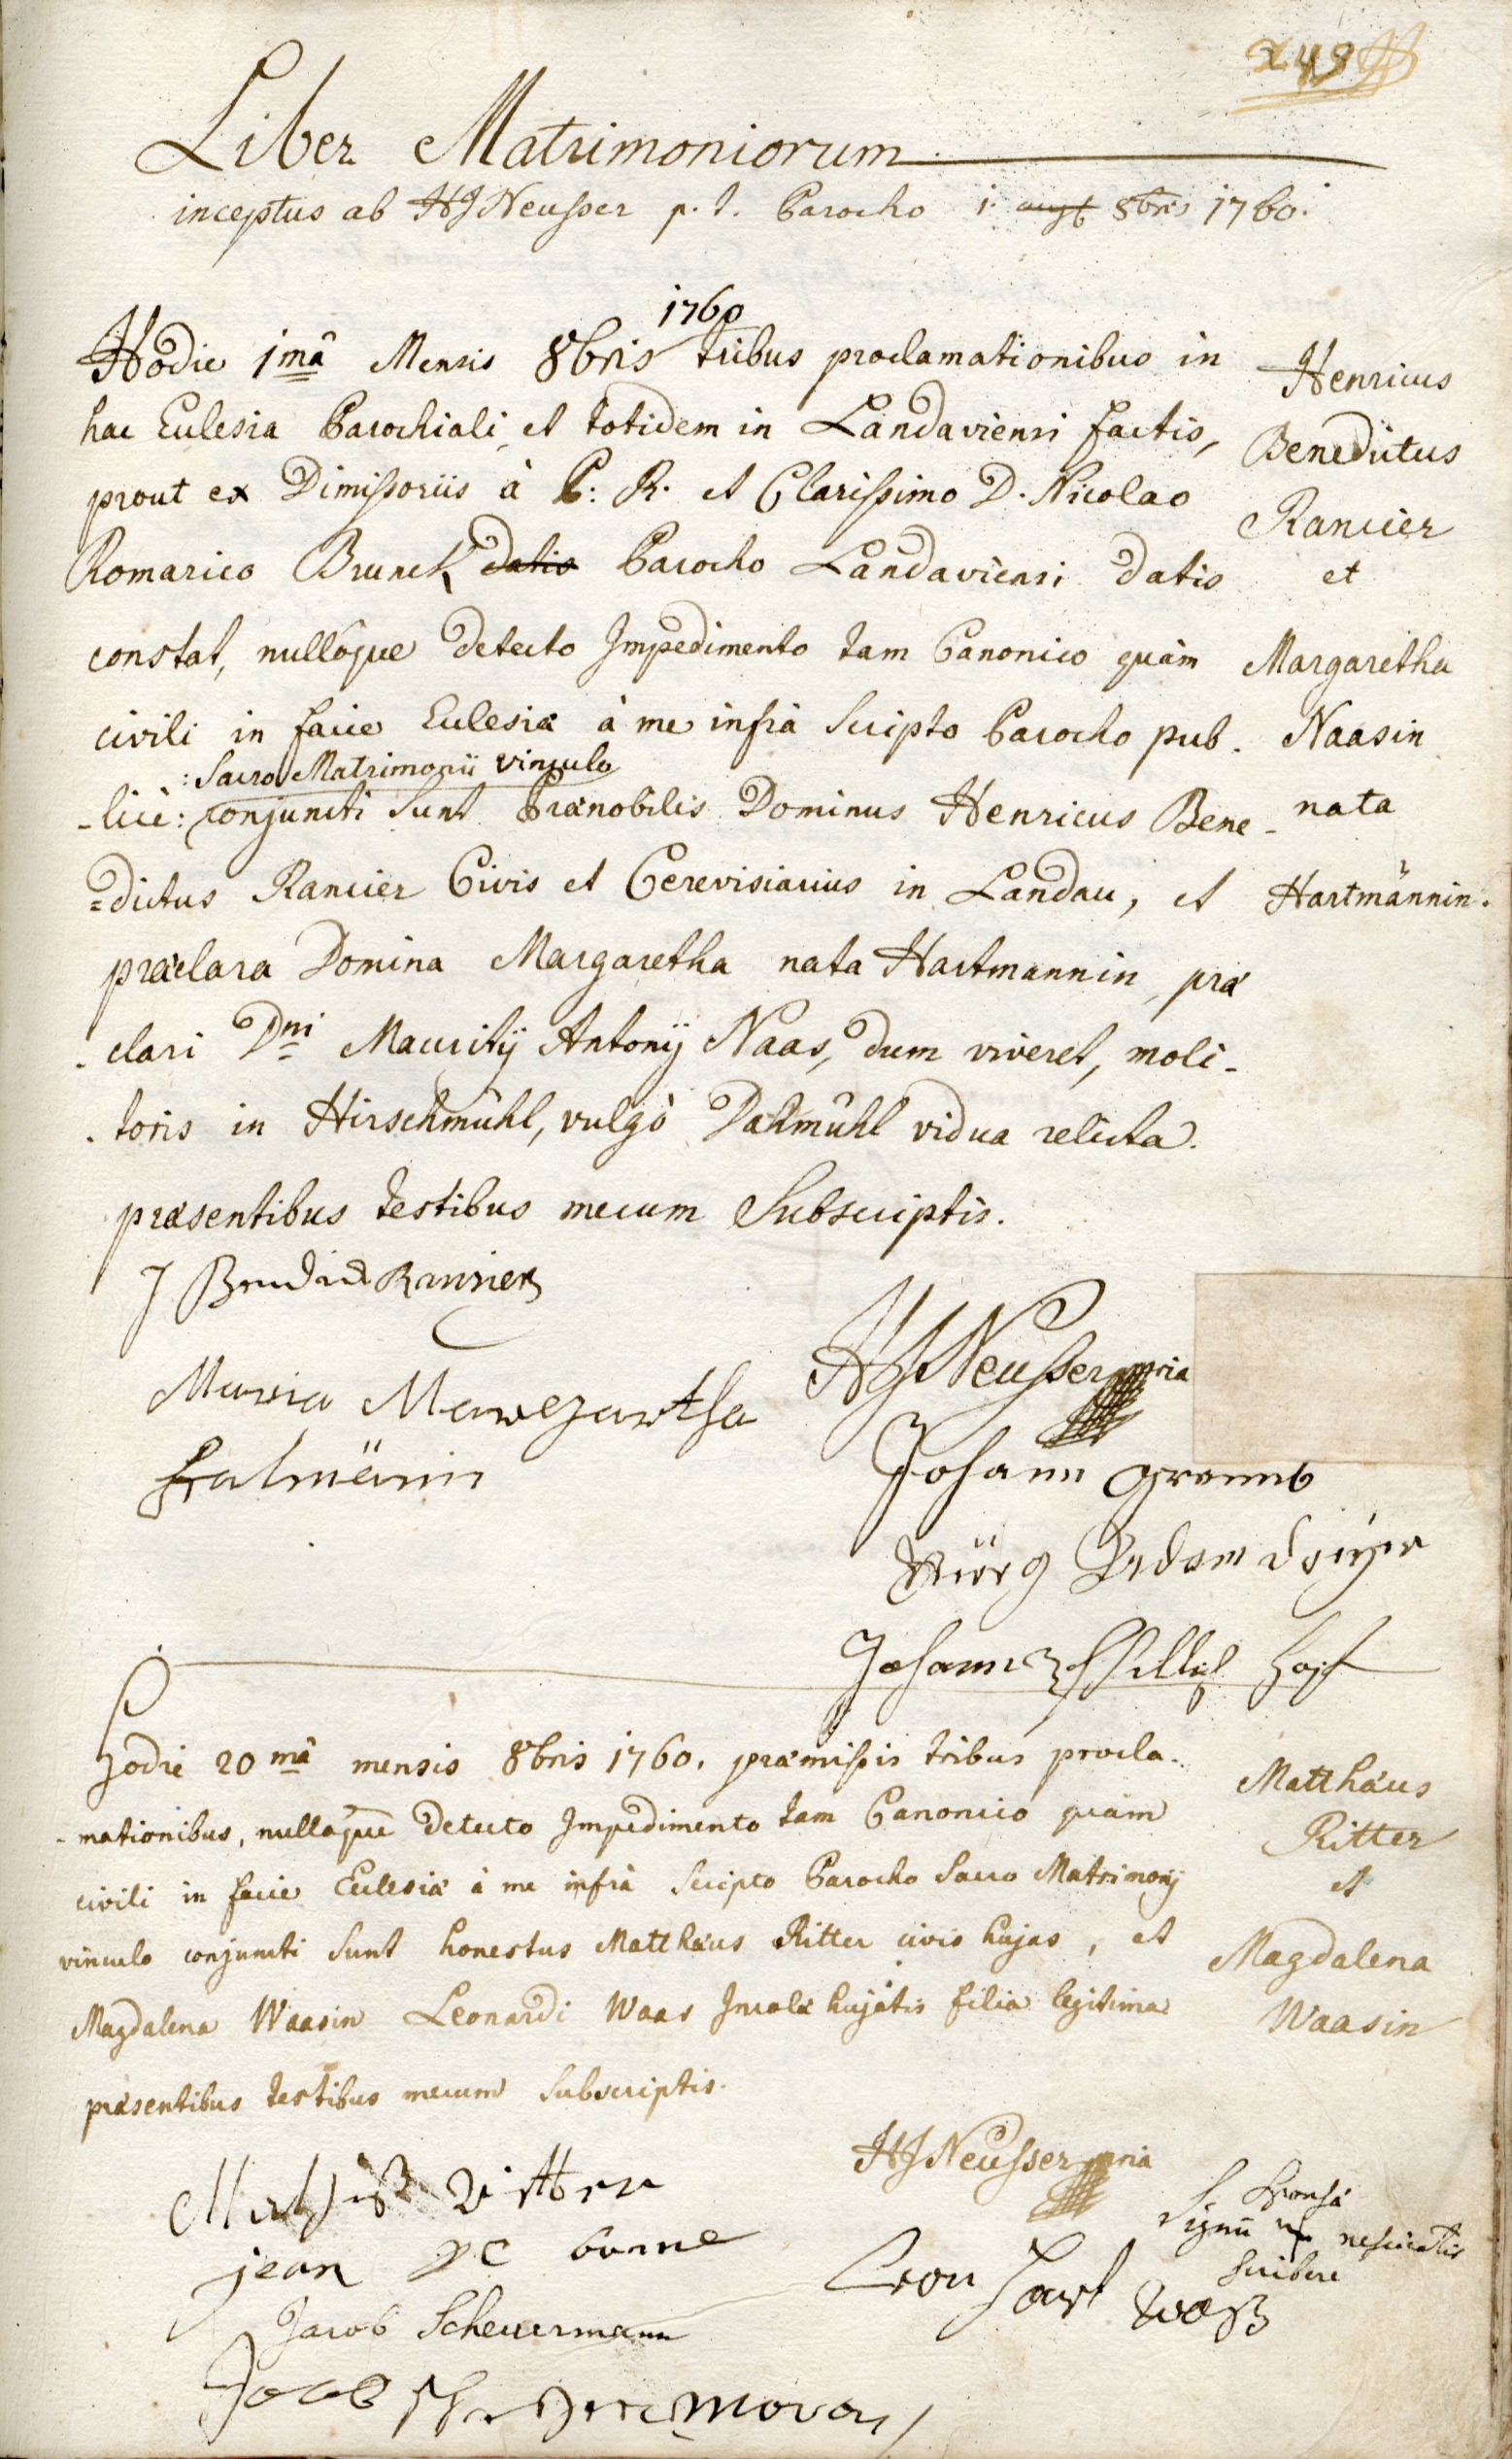 249
Liber Matrimoniorum
inceptus ab HJNeusser p. t. Parocho 1. augt 8bris 1760.
1760
Hodie 1mâ Mensis 8bris tribus proclamationibus in
hac Ecclesia Parochiali, et totidem in Landaviensi factis,
prout ex Dimissoriis à P. R. et Clarissimo D. Nicolao
Romarico Brunck datis Parocho Landaviensi datis
constat, nullôque detecto Impedimento tam Canonico quàm
civili in facie Ecclesiæ à me infrà Scripto Parocho pub-
:Sacro Matrimonii vinculo
-licè: conjuncti Sunt Prænobilis Dominus Henricus Bene-
=dictus Rancier Civis et Cerevisiarius in Landau, et
præclara Domina Margaretha nata Hartmannin, præ
-clari Dni Mauritij Antonij Naas, dum viveret, moli-
-toris in Hirschmühl, vulgò Dalmühl vidua relicta.
præsentibus testibus mecum Subscriptis.
Henricus
Benedictus
Rancier
et
Margaretha
Naasin
nata
Hartmännin.
J Benedict Ransier
Maria Maregartha
Hatmänin
HJNeusser mpria
Johann
Jörg Adam
Johannes
Hodie 20mâ mensis 8bris 1760. præmissis tribus procla-
-mationibus, nullôque detecto Impedimento tam Canonico quàm
civili in facie Ecclesiæ à me infrà Scripto Parocho Sacro Matrimonij
vinculo conjuncti Sunt honestus Matthæus Ritter civis hujas, et
Magdalena Waasin Leonardi Waas Incolæ hujatis filia legitima
præsentibus testibus mecum Subscriptis.
Matthæus
Ritter
et
Magdalena
Waasin
HJNeusser mpria
Sponsæ
Signū nescientis
scribere
Ritter
jean
Leon hart Waß
Jacob Scheuermann
Jacob